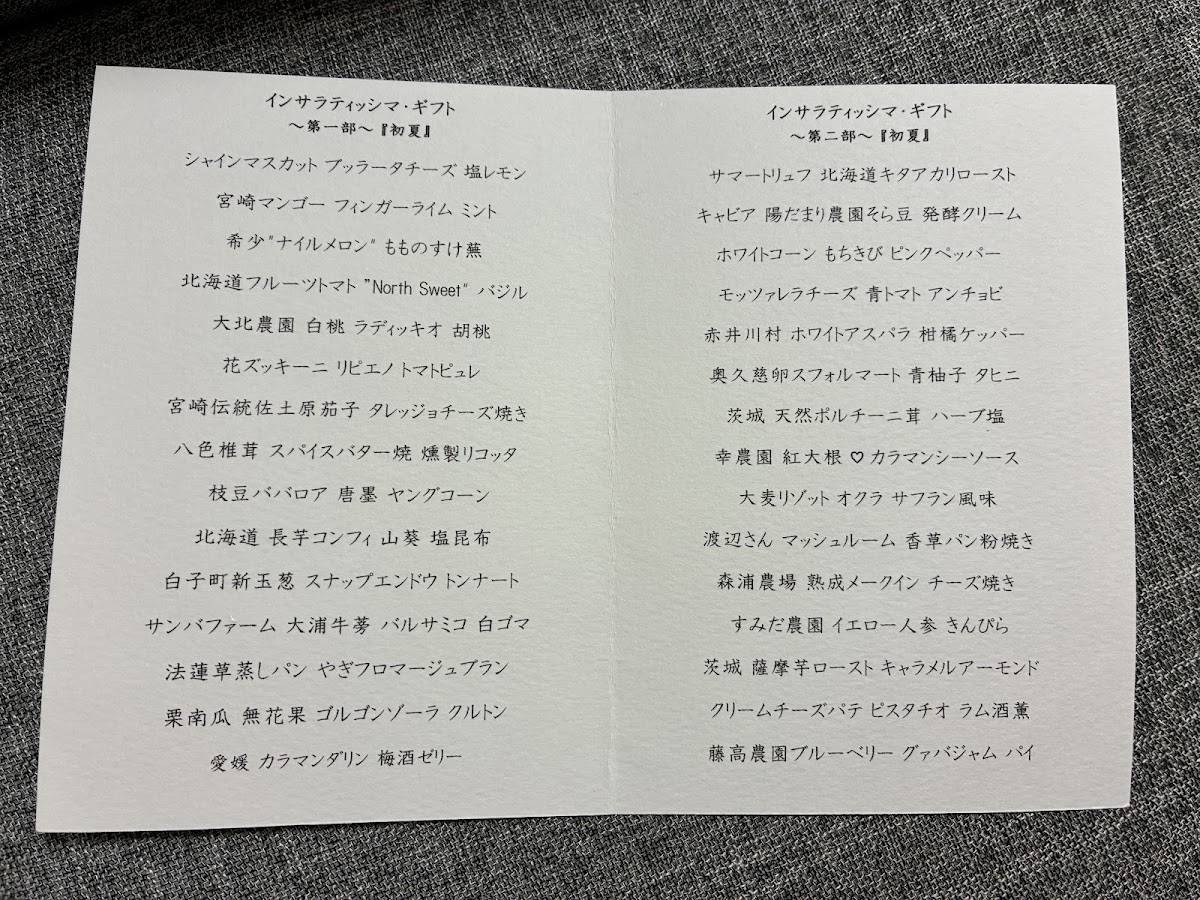 インサラティッシマ・ギフト
～第一部～『初夏』
シャインマスカット ブッラータチーズ 塩レモン
宮崎マンゴー フィンガーライム ミント
希少"ナイルメロン" もものすけ蕪
北海道フルーツトマト "North Sweet" バジル
大北農園 白桃 ラディッキオ 胡桃
花ズッキーニ リピエノ トマトピュレ
宮崎伝統佐土原茄子 タレッジョチーズ焼き
八色椎茸 スパイスバター焼 燻製リコッタ
枝豆ババロア 唐墨 ヤングコーン
北海道 長芋コンフィ 山葵 塩昆布
白子町新玉葱 スナップエンドウ トンナート
サンバファーム 大浦牛蒡 バルサミコ 白ゴマ
法蓮草蒸しパン やぎフロマージュブラン
栗南瓜 無花果 ゴルゴンゾーラ クルトン
愛媛 カラマンダリン 梅酒ゼリー
インサラティッシマ・ギフト
～第二部～『初夏』
サマートリュフ 北海道キタアカリロースト
キャビア 陽だまり農園そら豆 発酵クリーム
ホワイトコーン もちきび ピンクペッパー
モッツァレラチーズ 青トマト アンチョビ
赤井川村 ホワイトアスパラ 柑橘ケッパー
奥久慈卵スフォルマート 青柚子 タヒニ
茨城 天然ポルチーニ茸 ハーブ塩
幸農園 紅大根 ♡ カラマンシーソース
大麦リゾット オクラ サフラン風味
渡辺さん マッシュルーム 香草パン粉焼き
森浦農場 熟成メークイン チーズ焼き
すみだ農園 イエロー人参 きんぴら
茨城 薩摩芋ロースト キャラメルアーモンド
クリームチーズパテ ピスタチオ ラム酒薫
藤高農園ブルーベリー グァバジャム パイ